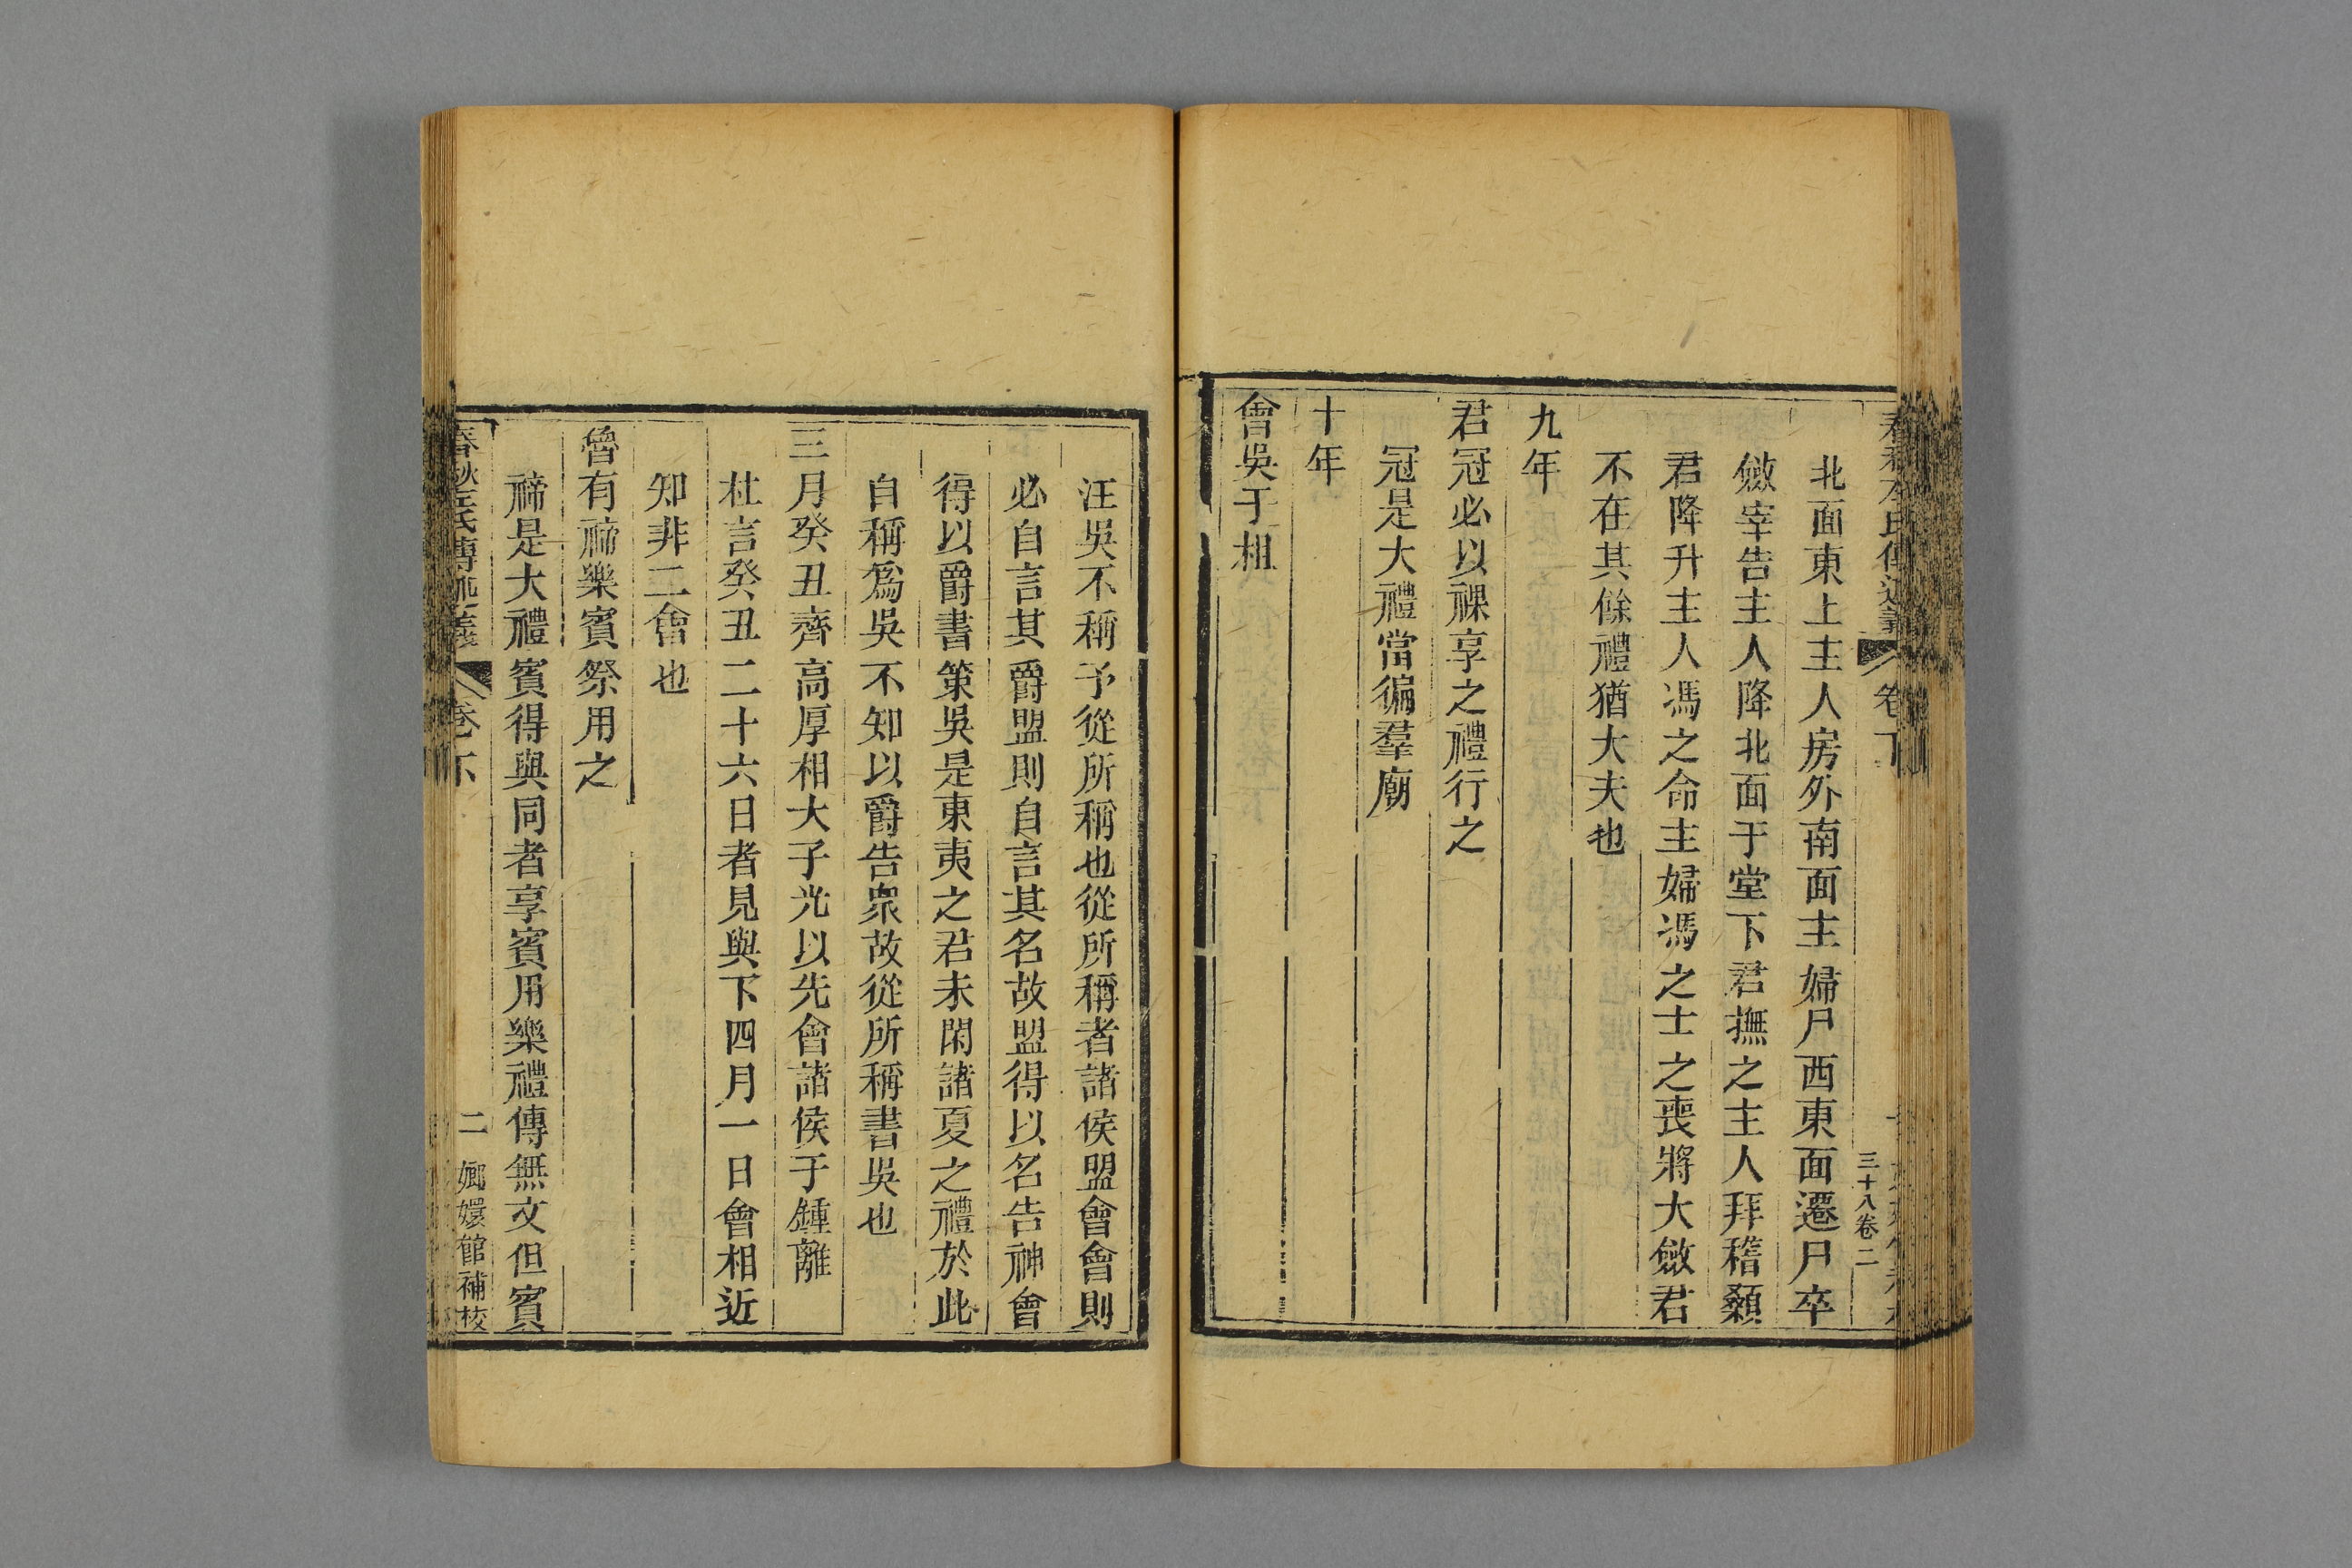 春秋左氏傳述義 卷下
三十八卷二
北面東上主人房外南面主婦尸西東面遷尸卒
斂宰告主人降北面于堂下君撫之主人拜稽顙
君降升主人馮之命主婦馮之士之喪將大斂君
不在其餘禮猶大夫也
九年
君冠必以祼享之禮行之
冠是大禮當徧羣廟
十年
會吳于柤
注吳不稱予從所稱也從所稱者諸侯盟會會則
必自言其爵盟則自言其名故盟得以名告神會
得以爵書策吳是東夷之君未閑諸夏之禮於此
自稱爲吳不知以爵告眾故從所稱書吳也
三月癸丑齊高厚相大子光以先會諸侯于鍾離
杜言癸丑二十六日者見與下四月一日會相近
知非二會也
魯有禘樂賓祭用之
禘是大禮賓得與同者享賓用樂禮傳無文但賓
春秋左氏傳述義 卷下 二 嫏嬛館補校